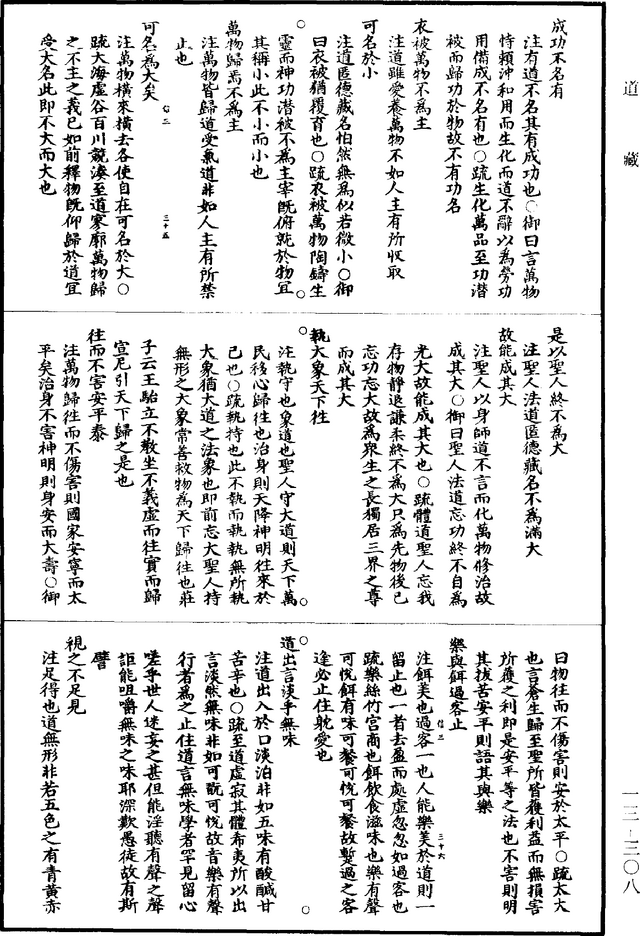 道藏
成功不名有
注有道不名其有成功也○御曰言萬物
恃賴沖和用而生化而道不辭以為勞功
用備成不名有也○䟽生化萬品至功潜
被而歸功於物故不有功名
衣被萬物不為主
注道雖愛養萬物不如人主有所收取
可名於小
注道匿德藏名怕然無為似若微小○御
曰衣被猶覆育也○䟽衣被萬物陶鑄生
靈而神功潜被不為主宰既俯就於物宜
其稱小此不小而小也
萬物歸焉不為主
注萬物皆歸道受氣道非如人主有所禁
止也
可名為大矣
注萬物橫來橫去各使自在可名於大○
䟽大海虛谷百川競湊至道寥廓萬物歸
之不主之義已如前釋物既仰歸於道宜
受大名此即不大而大也
是以聖人終不為大
注聖人法道匿德藏名不為滿大
故能成其大
注聖人以身師道不言而化萬物修治故
成其大○御曰聖人法道忘功終不自為
光大故能成其大也○䟽體道聖人忘我
存物靜退謙柔終不為大只為先物後己
忘功忘大故為眾生之長獨居三界之尊
而成其大
執大象天下往
注執守也象道也聖人守大道則天下萬
民移心歸往也治身則天降神明往來於
己也○䟽執持也此不執而執執無所執
大象猶大道之法象也即前忘大聖人持
無形之大象常善救物為天下歸往也莊
子云王駘立不教坐不義虛而往實而歸
宣尼引天下歸之是也
往而不害安平泰
注萬物歸往而不傷害則國家安寧而太
平矣治身不害神明則身安而大壽○御
曰物往而不傷害則安於太平○䟽太大
也言蒼生歸至聖所皆獲利益而無損害
所獲之利即是安平等之法也不害則明
其拔苦安平則語其與樂
樂與餌過客止
注餌美也過客一也人能樂美於道則一
留止也一者去盈而處虛忽忽如過客也
䟽樂絲竹宮商也餌飲食滋味也樂有聲
可悅餌有味可餐可悅可餐故暫過之客
逢必止住躭愛也
道出言淡乎無味
注道出入於口淡泊非如五味有酸醎甘
苦辛也○䟽至道虛寂其體希夷所以出
言淡然無味非如可翫可悅故音樂有聲
行者為之止住道言無味學者罕見留心
嗟乎世人迷妄之甚但能淫聽有聲之聲
詎能咀嚼無味之味耶深歎愚徒故有斯
譬
視之不足見
注足得也道無形非若五色之有青黃赤
一三－三〇八